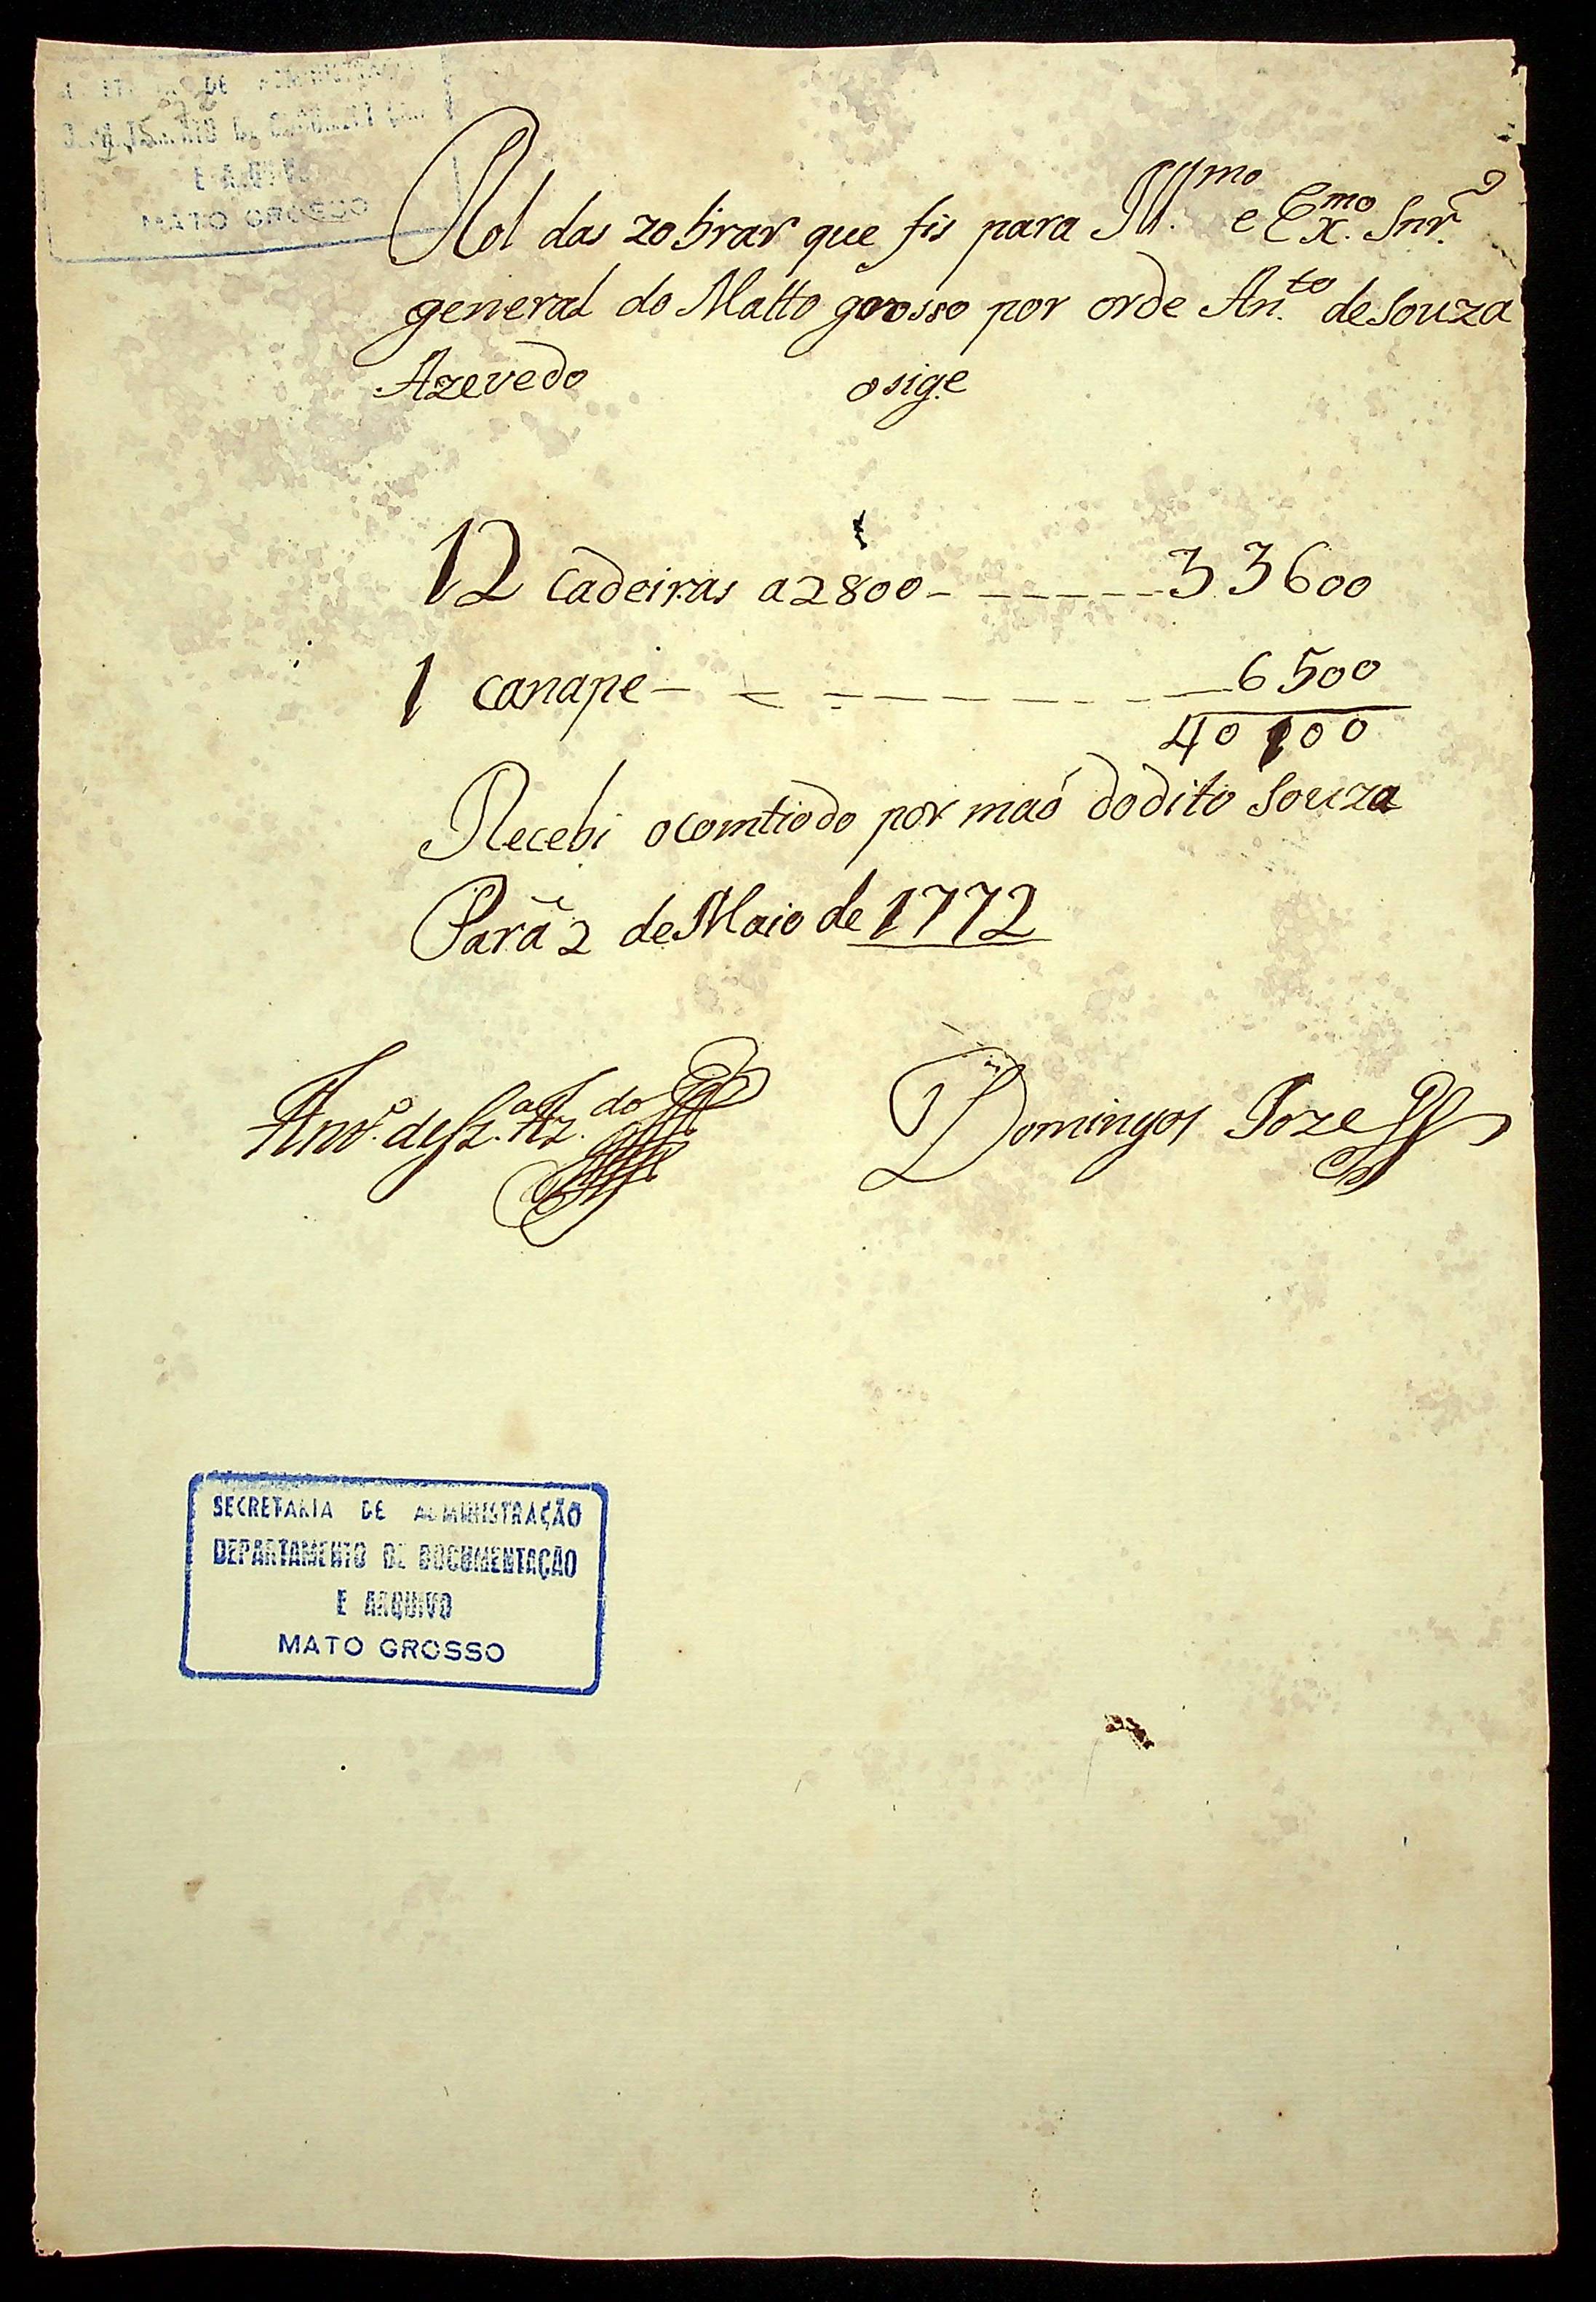 DE ADMINISTRAÇÃO
E ARQUIVO
MATO GROSSO
Rol das zobrar que fis para Ill.mo e Ex.mo Snr.
general do Matto groosso por orde An.to de Souza
Azevedo osige
12 cadeiras a 2800 - - - - - - 33600
1 canape - - - - - - - - 6500
40100
Recebi ocomtiodo por maó do dito Souza
Pará 2 de Maio de 1772
Anto. de Sz.a Az.do Domingos Joze
SECRETARIA DE ADMINISTRAÇÃO
DEPARTAMENTO DE DOCUMENTAÇÃO
E ARQUIVO
MATO GROSSO